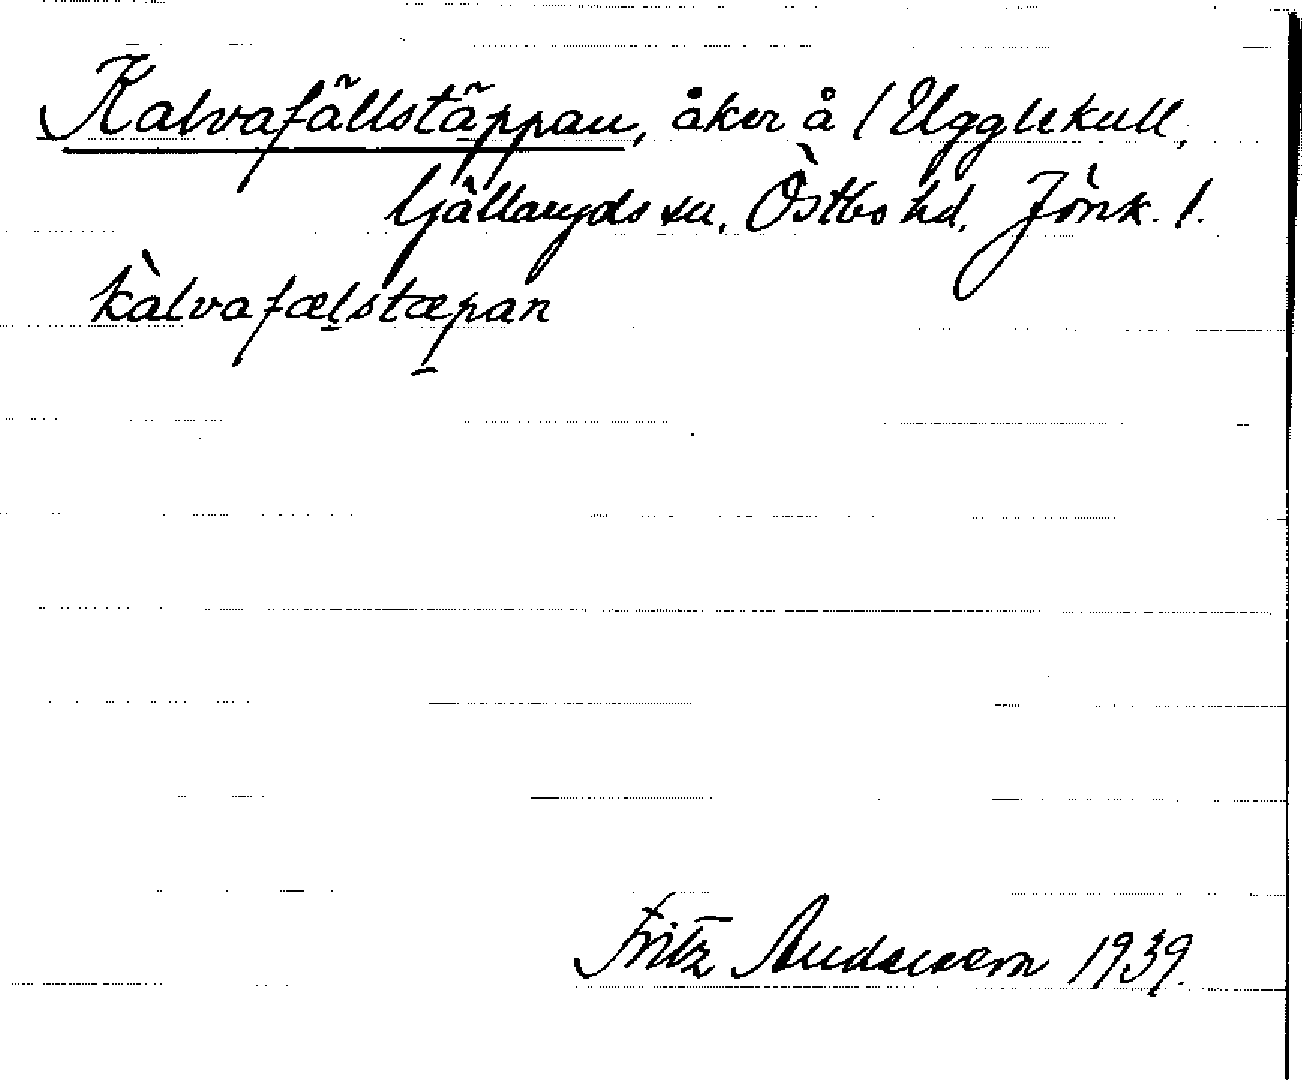 Kalvafällstäppan, åker å / Ugglekull,
Gällaryds sn, Östbo hd, Jönk. l.
kàlvafælstæpan
Fritz Anderson 1939.